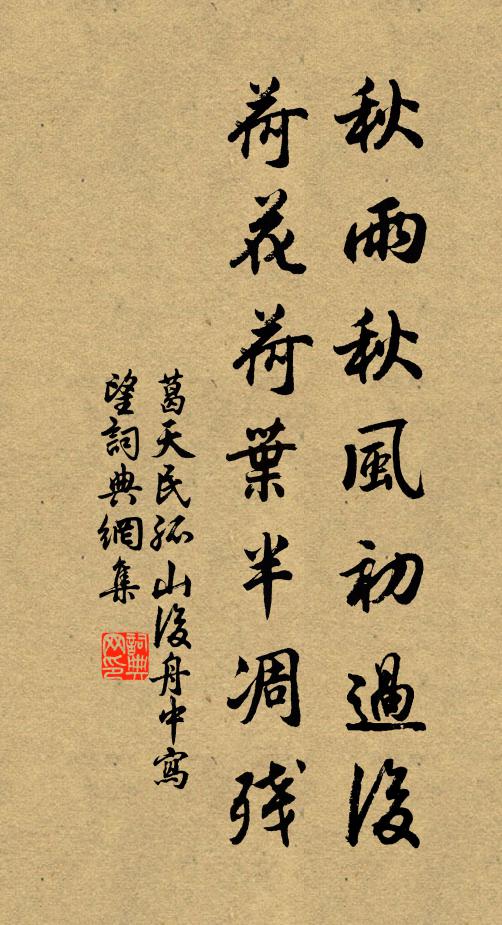 秋雨秋風初過後
荷花荷葉半凋残
葛天民孤山後舟中寫
望詞典網集
詞典
网印